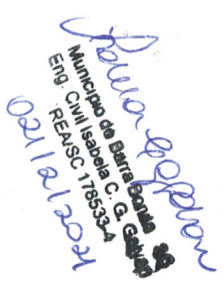 Município de Barra Bonita SC
Eng. Civil Isabela C. G. Galvan
REA/SC 178533-4
02/12/2021